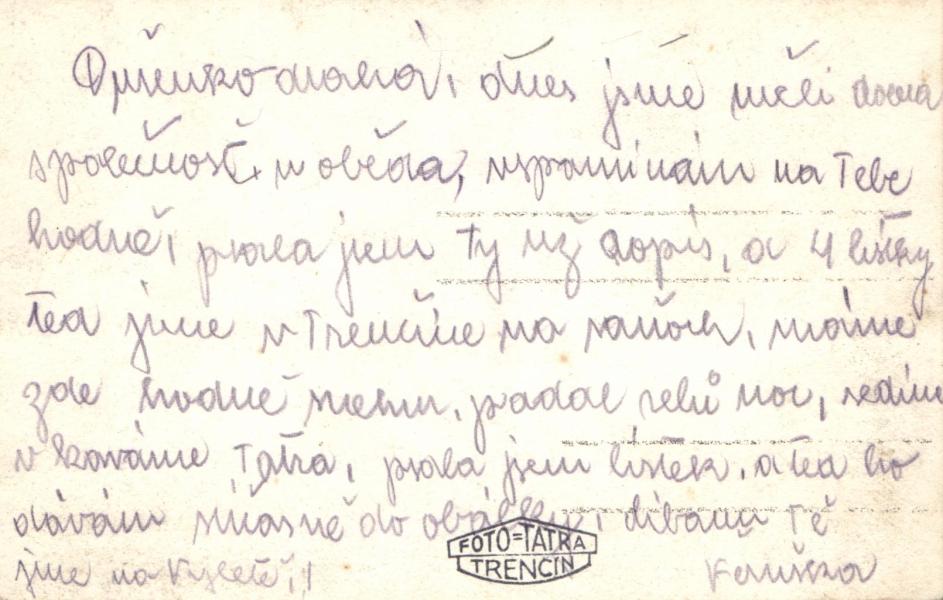 Dušenko drahá, dnes jsme měli doma
společnost, u oběda, vspomínám na Tebe
hodně, psala jsem Ty už dopis, a 4 lístky
teď jsme v Trenčíne na saňoch, máme
zde hodně snehu, padal celů noc, sedíme
v kavárne Tatra, psala jsem lístek, a teď ho
dávám do obálky, líbam Tě
jsme na Vyletě,!
FOTO=TATRA
TRENČÍN